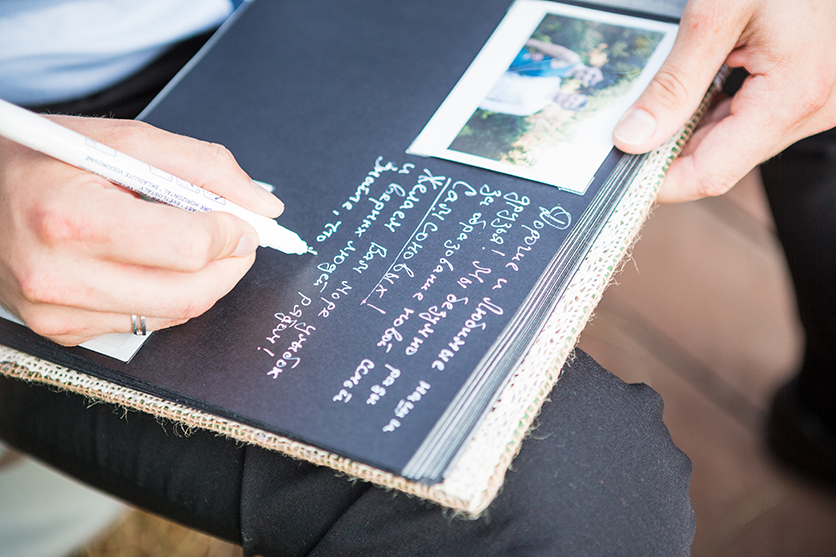 Дорогие и Любимые наши
друзья! Мы безумно рады
за образование новой семьи
Самсоновых!
Желаем Вам море улыбок
и верных людей рядом!
Знайте, что
HORIZONTAL